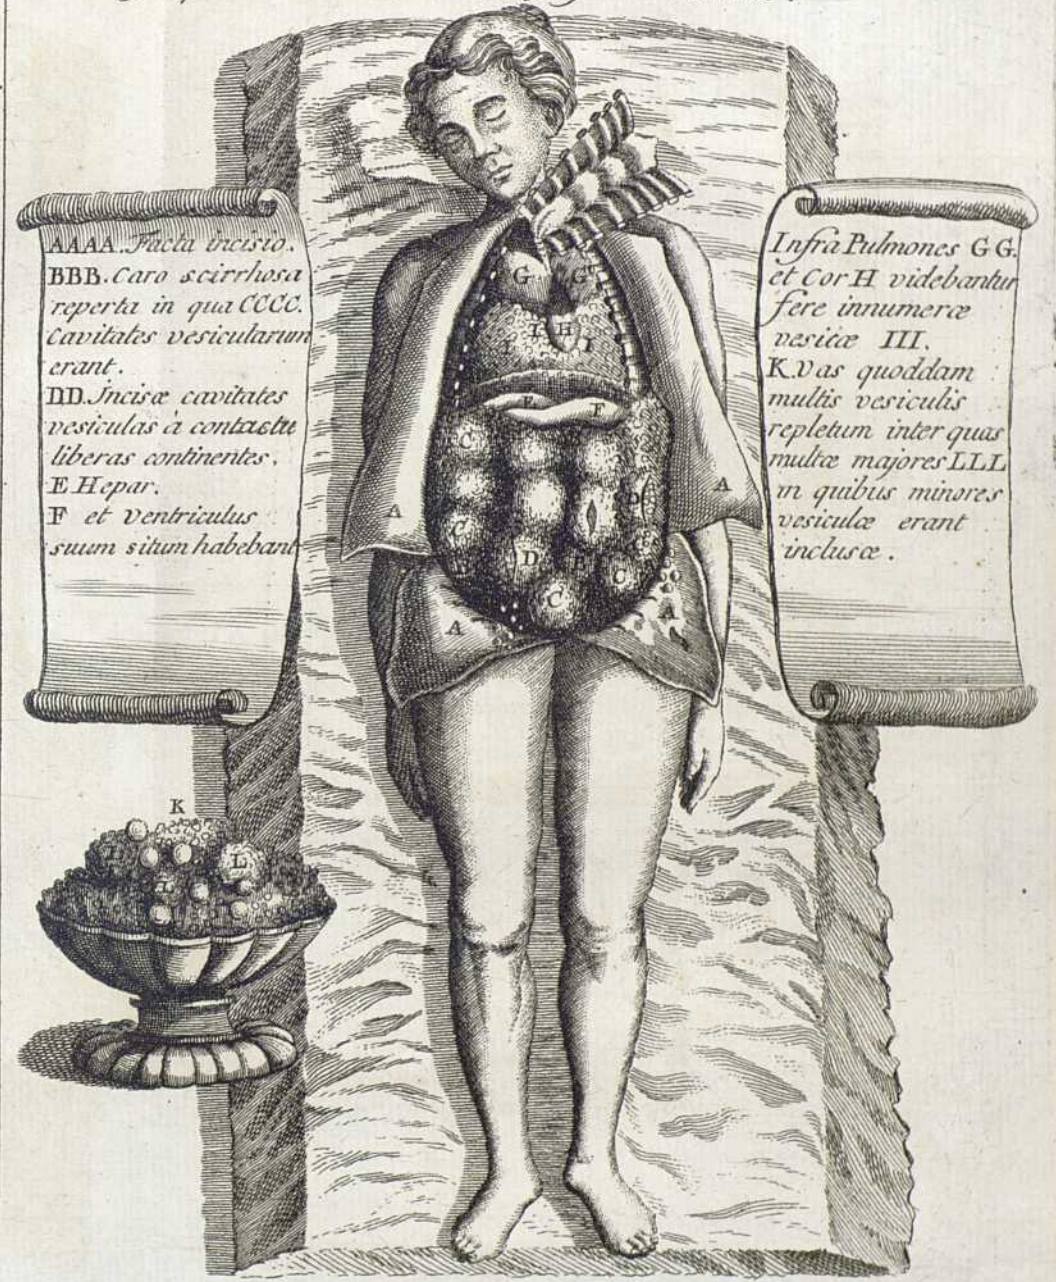 AAAA. Facta incisio.
BBB. Caro scirrhosa
reperta in qua CCCC.
Cavitates vesicularum
erant.
DD. Incisæ cavitates
vesiculas à contactu
liberas continentes.
E Hepar.
F et ventriculus
suum situm habebant
Infra Pulmones G G.
et Cor H videbantur
fere innumeræ
vesicæ III.
K. Vas quoddam
multis vesiculis
repletum inter quas
multæ majores LLL
in quibus minores
vesiculæ erant
inclusæ.
G G
I H I
I
E F
C
D
A A
C
D B C
C
A A
K
L
L